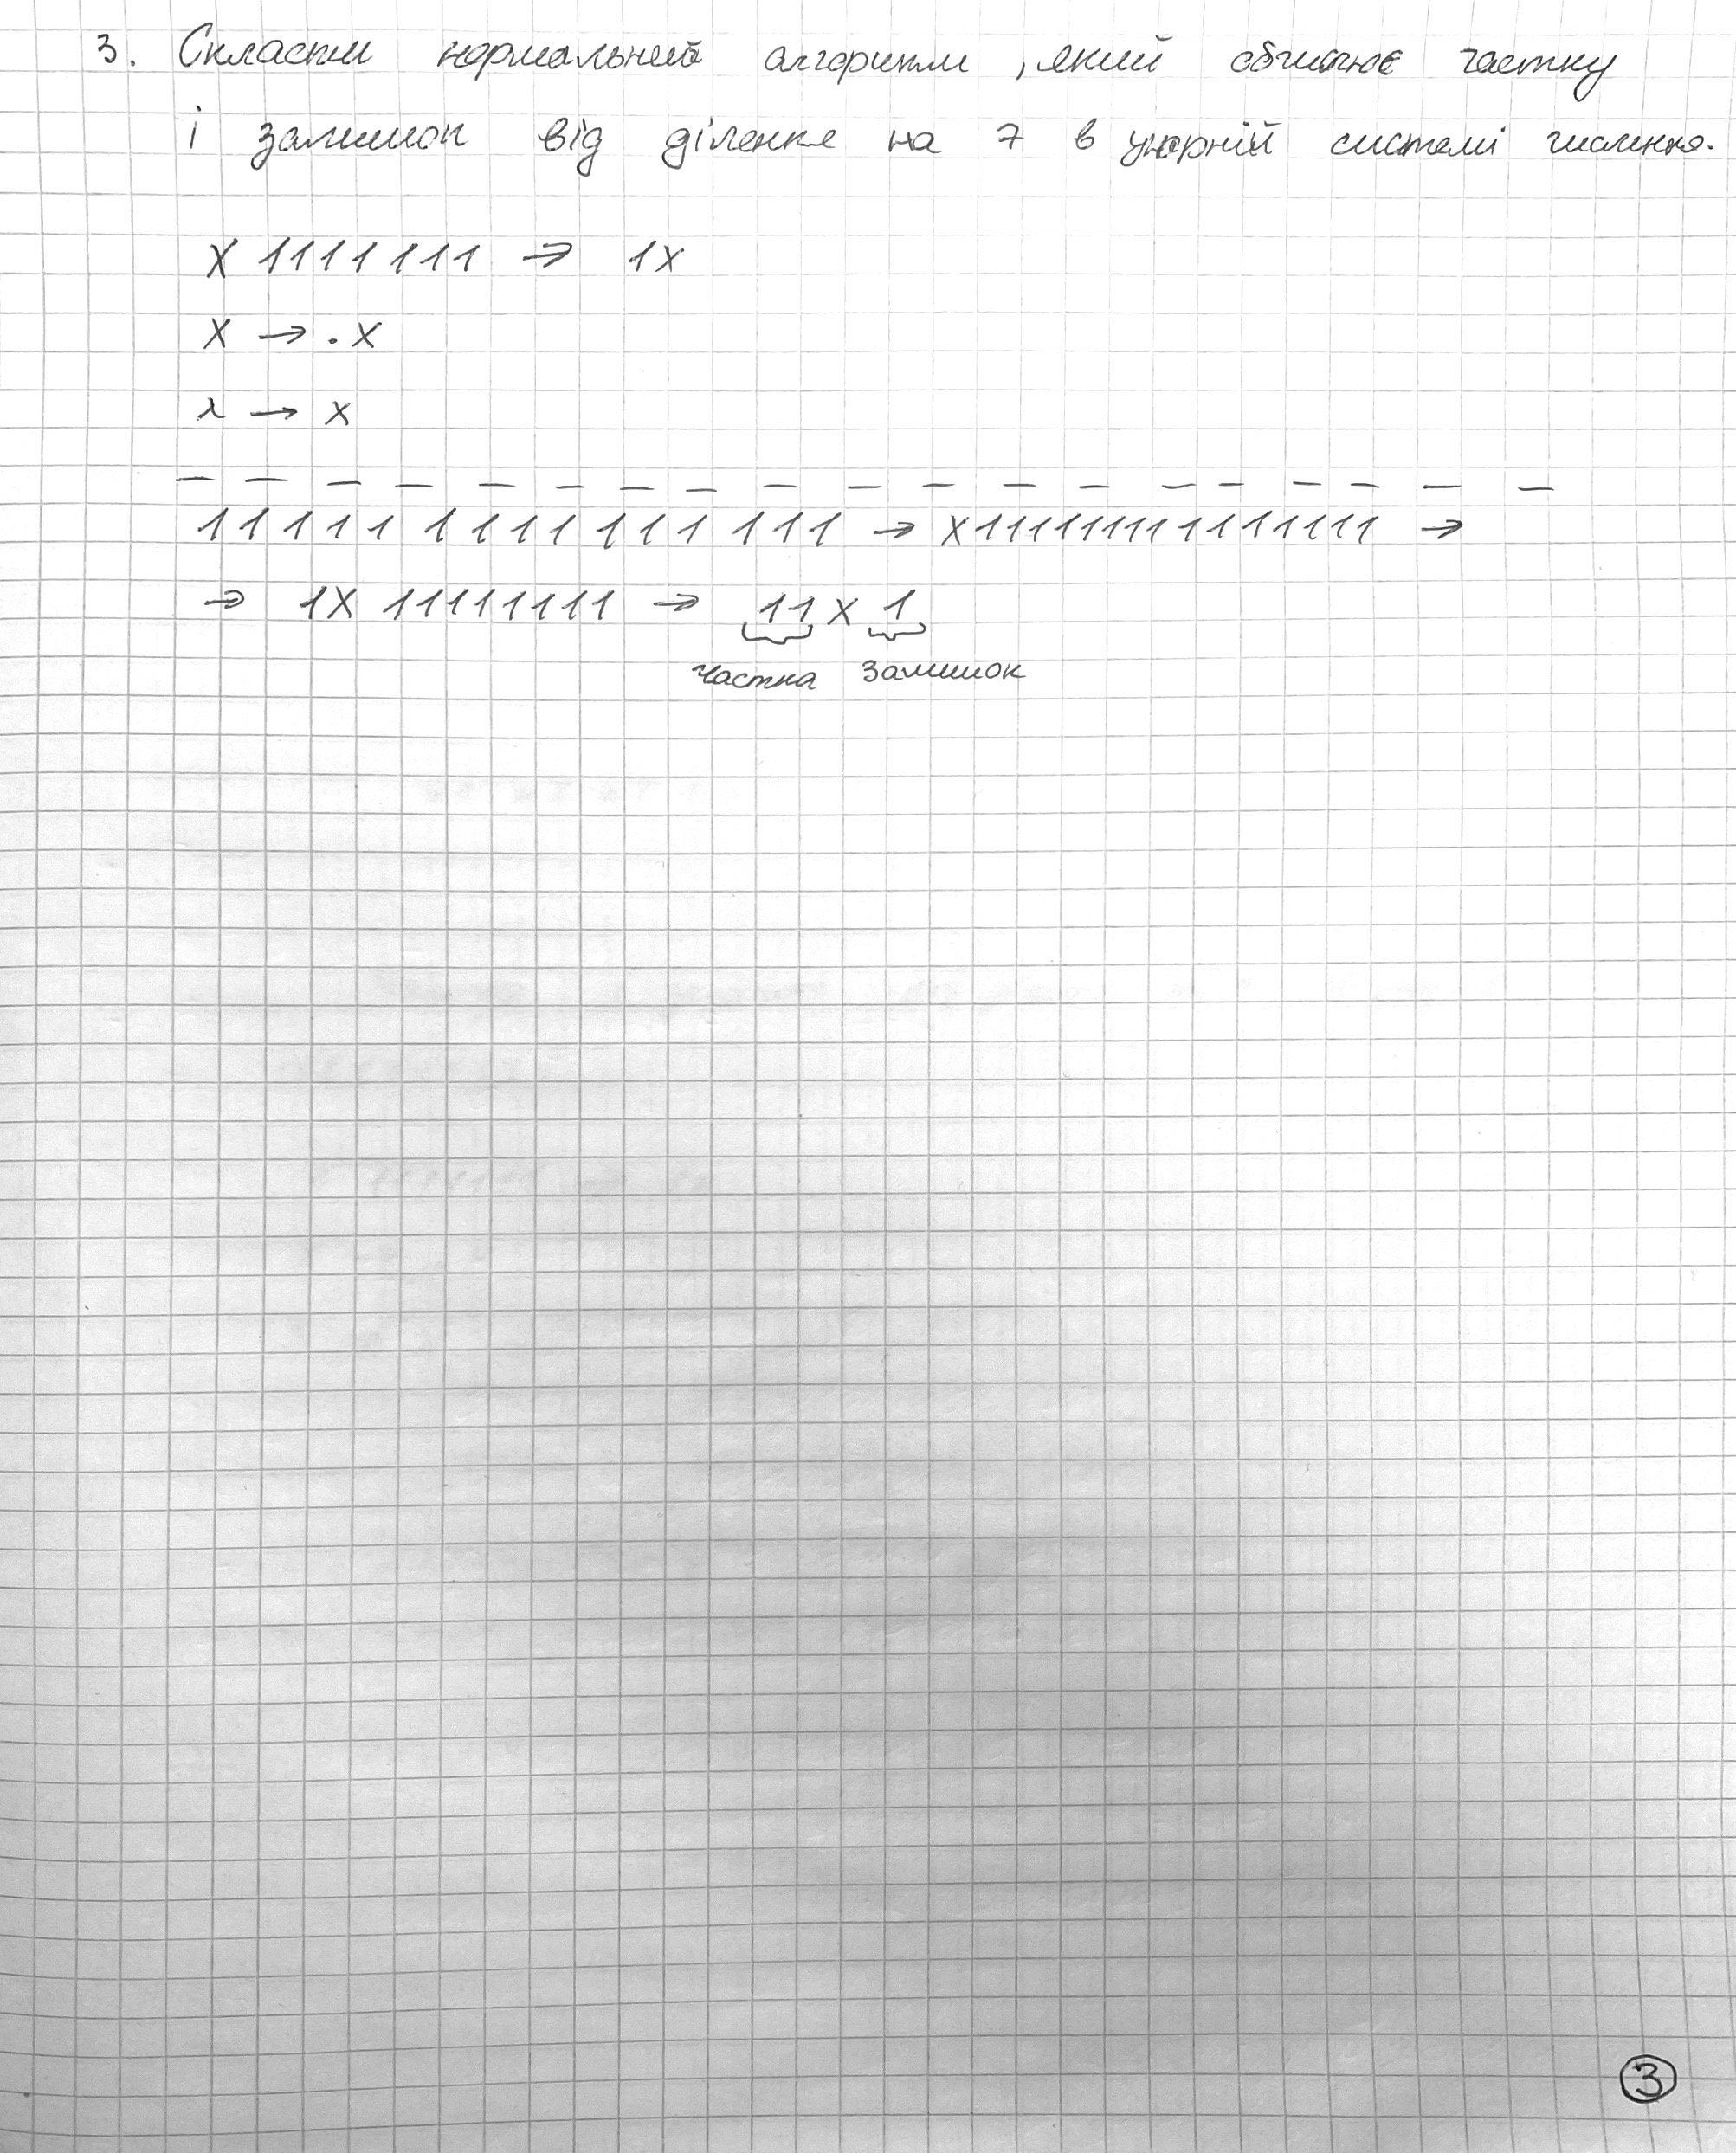 3. Скласти нормальний алгоритм, який обчислює частку
і залишок від ділення на 7 в унарній системі числення.
X 1111111 → 1X
X → . X
λ → X
— — — — — — — — — — — — — — — — — — —
11111 1111 111 111 → X111111111111111 →
→ 1X 11111111 → 11 X 1
частка залишок
3